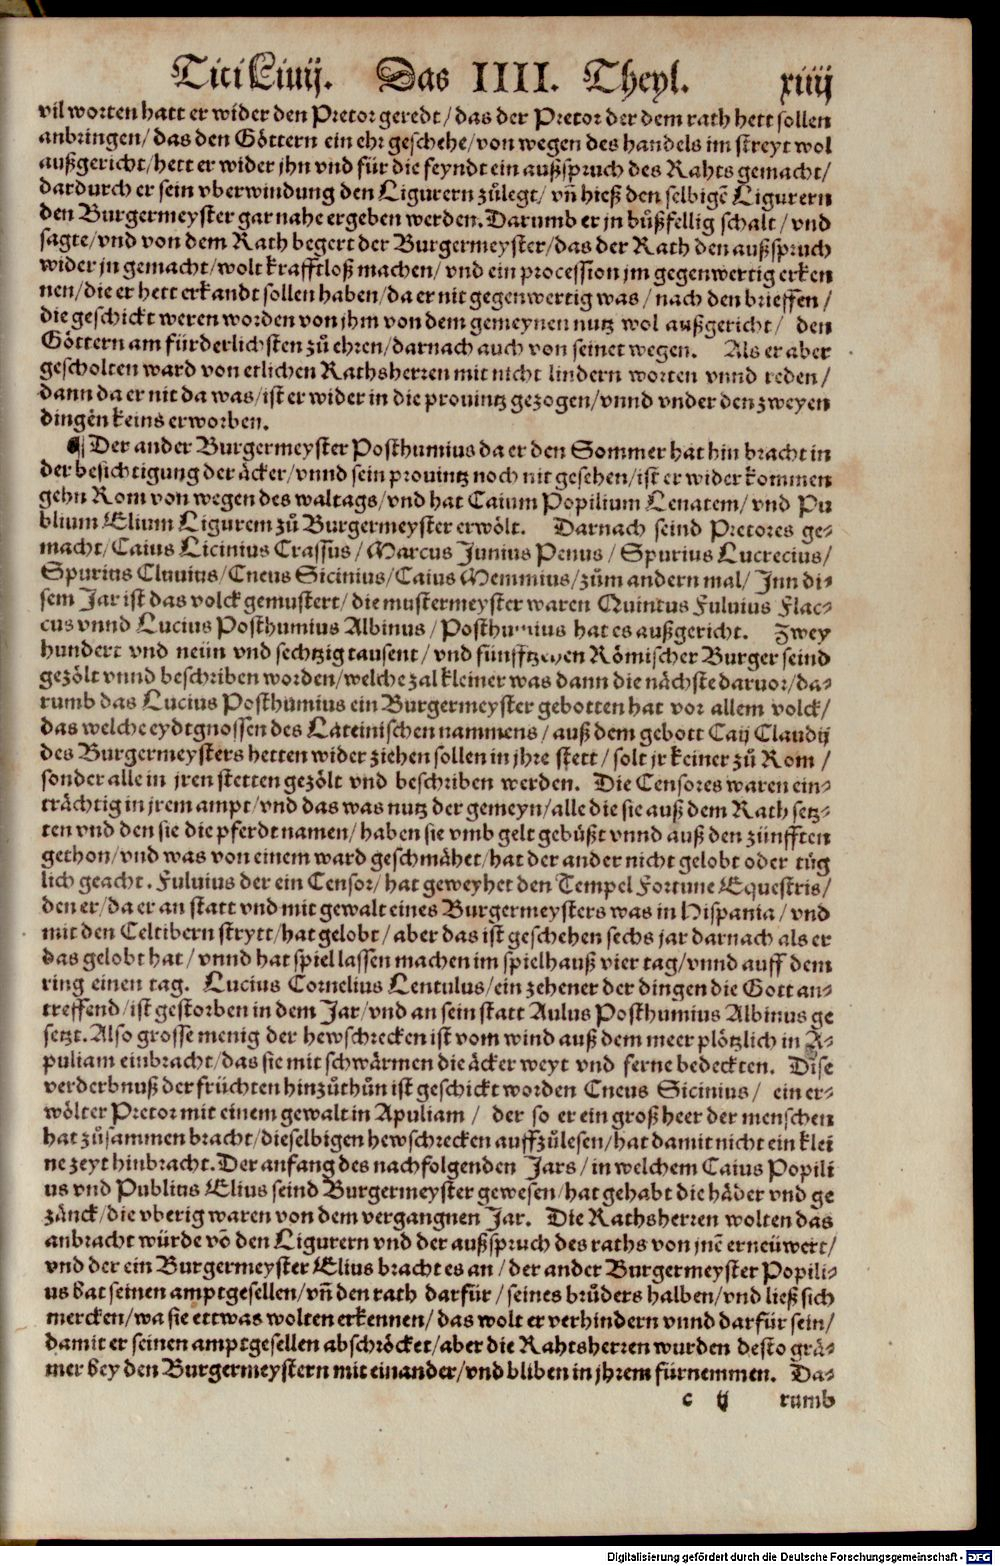 Titi Liuij. Das IIII. Theyl. xiiij
vil worten hatt er wider den Pretor geredt/ das der Pretor der dem rath hett sollen
anbringen/ das den Göttern ein ehr geschehe/ von wegen des handels im streyt wol
außgericht/ hett er wider jhn vnd für die feyndt ein außspruch des Rahts gemacht/
dardurch er sein vberwindung den Ligurern zůlegt/ vñ hieß den selbigē Ligurern
den Burgermeyster gar nahe ergeben werden. Darumb er jn bůßfellig schalt/ vnd
sagte/ vnd von dem Rath begert der Burgermeyster/ das der Rath den außspruch
wider jn gemacht/ wolt krafftloß machen/ vnd ein procession jm gegenwertig erken
nen/ die er hett erkandt sollen haben/ da er nit gegenwertig was/ nach den brieffen/
die geschickt weren worden von jhm von dem gemeynen nutz wol außgericht/ den
Göttern am fürderlichsten zů ehren/ darnach auch von seinet wegen. Als er aber
gescholten ward von etlichen Rathsherren mit nicht lindern worten vnnd reden/
dann da er nit da was/ ist er wider in die prouintz gezogen/ vnnd vnder den zweyen
dingen keins erworben.
¶ Der ander Burgermeyster Posthumius da er den Sommer hat hin bracht in
der besichtigung der äcker/ vnnd sein prouintz noch nit gesehen/ ist er wider kommen
gehn Rom von wegen des waltags/ vnd hat Caium Popilium Lenatem/ vnd Pu
blium Elium Ligurem zů Burgermeyster erwölt. Darnach seind Pretores ge-
macht/ Caius Licinius Crassus/ Marcus Junius Penus/ Spurius Lucrecius/
Spurius Cluuius/ Cneus Sicinius/ Caius Memmius/ zům andern mal/ Jnn di-
sem Jar ist das volck gemustert/ die mustermeyster waren Quintus Fuluius Flac-
cus vnnd Lucius Posthumius Albinus/ Posthumius hat es außgericht. Zwey
hundert vnd neün vnd sechtzig tausent/ vnd fünfftzehen Römischer Burger seind
gezölt vnnd beschriben worden/ welche zal kleiner was dann die nächste daruor/ da-
rumb das Lucius Posthumius ein Burgermeyster gebotten hat vor allem volck/
das welche eydtgnossen des Lateinischen nammens/ auß dem gebott Caij Claudij
des Burgermeysters hetten wider ziehen sollen in jhre stett/ solt jr keiner zů Rom/
sonder alle in jren stetten gezölt vnd beschriben werden. Die Censores waren ein-
trächtig in jrem ampt/ vnd das was nutz der gemeyn/ alle die sie auß dem Rath setz-
ten vnd den sie die pferdt namen/ haben sie vmb gelt gebüßt vnnd auß den zünfften
gethon/ vnd was von einem ward geschmähet/ hat der ander nicht gelobt oder tüg
lich geacht. Fuluius der ein Censor/ hat geweyhet den Tempel Fortune Equestris/
den er/ da er an statt vnd mit gewalt eines Burgermeysters was in Hispania/ vnd
mit den Celtibern strytt/ hat gelobt/ aber das ist geschehen sechs jar darnach als er
das gelobt hat/ vnnd hat spiel lassen machen im spielhauß vier tag/ vnnd auff dem
ring einen tag. Lucius Cornelius Lentulus/ ein zehener der dingen die Gott an-
treffend/ ist gestorben in dem Jar/ vnd an sein statt Aulus Posthumius Albinus ge
setzt. Also grosse menig der hewschrecken ist vom wind auß dem meer plötzlich in A-
puliam einbracht/ das sie mit schwärmen die äcker weyt vnd ferne bedeckten. Dise
verderbnuß der früchten hinzůthůn ist geschickt worden Cneus Sicinius/ ein er-
wölter Pretor mit einem gewalt in Apuliam/ der so er ein groß heer der menschen
hat zůsammen bracht/ dieselbigen hewschrecken auffzůlesen/ hat damit nicht ein klei
ne zeyt hinbracht. Der anfang des nachfolgenden Jars/ in welchem Caius Popili
us vnd Publius Elius seind Burgermeyster gewesen/ hat gehabt die häder vnd ge
zänck/ die vberig waren von dem vergangnen Jar. Die Rathsherren wolten das
anbracht würde vō den Ligurern vnd der außspruch des raths von jnē erneüwert/
vnd der ein Burgermeyster Elius bracht es an/ der ander Burgermeyster Popili-
us bat seinen amptgesellen/ vñ den rath darfür/ seines brüders halben/ vnd ließ sich
mercken/ wa sie ettwas wolten erkennen/ das wolt er verhindern vnnd darfür sein/
damit er seinen amptgesellen abschröcket/ aber die Rahtsherren wurden desto grä-
mer bey den Burgermeystern mit einander/ vnd bliben in jhrem fürnemmen. Da-
c ij rumb
Digitalisierung gefördert durch die Deutsche Forschungsgemeinschaft - DFG